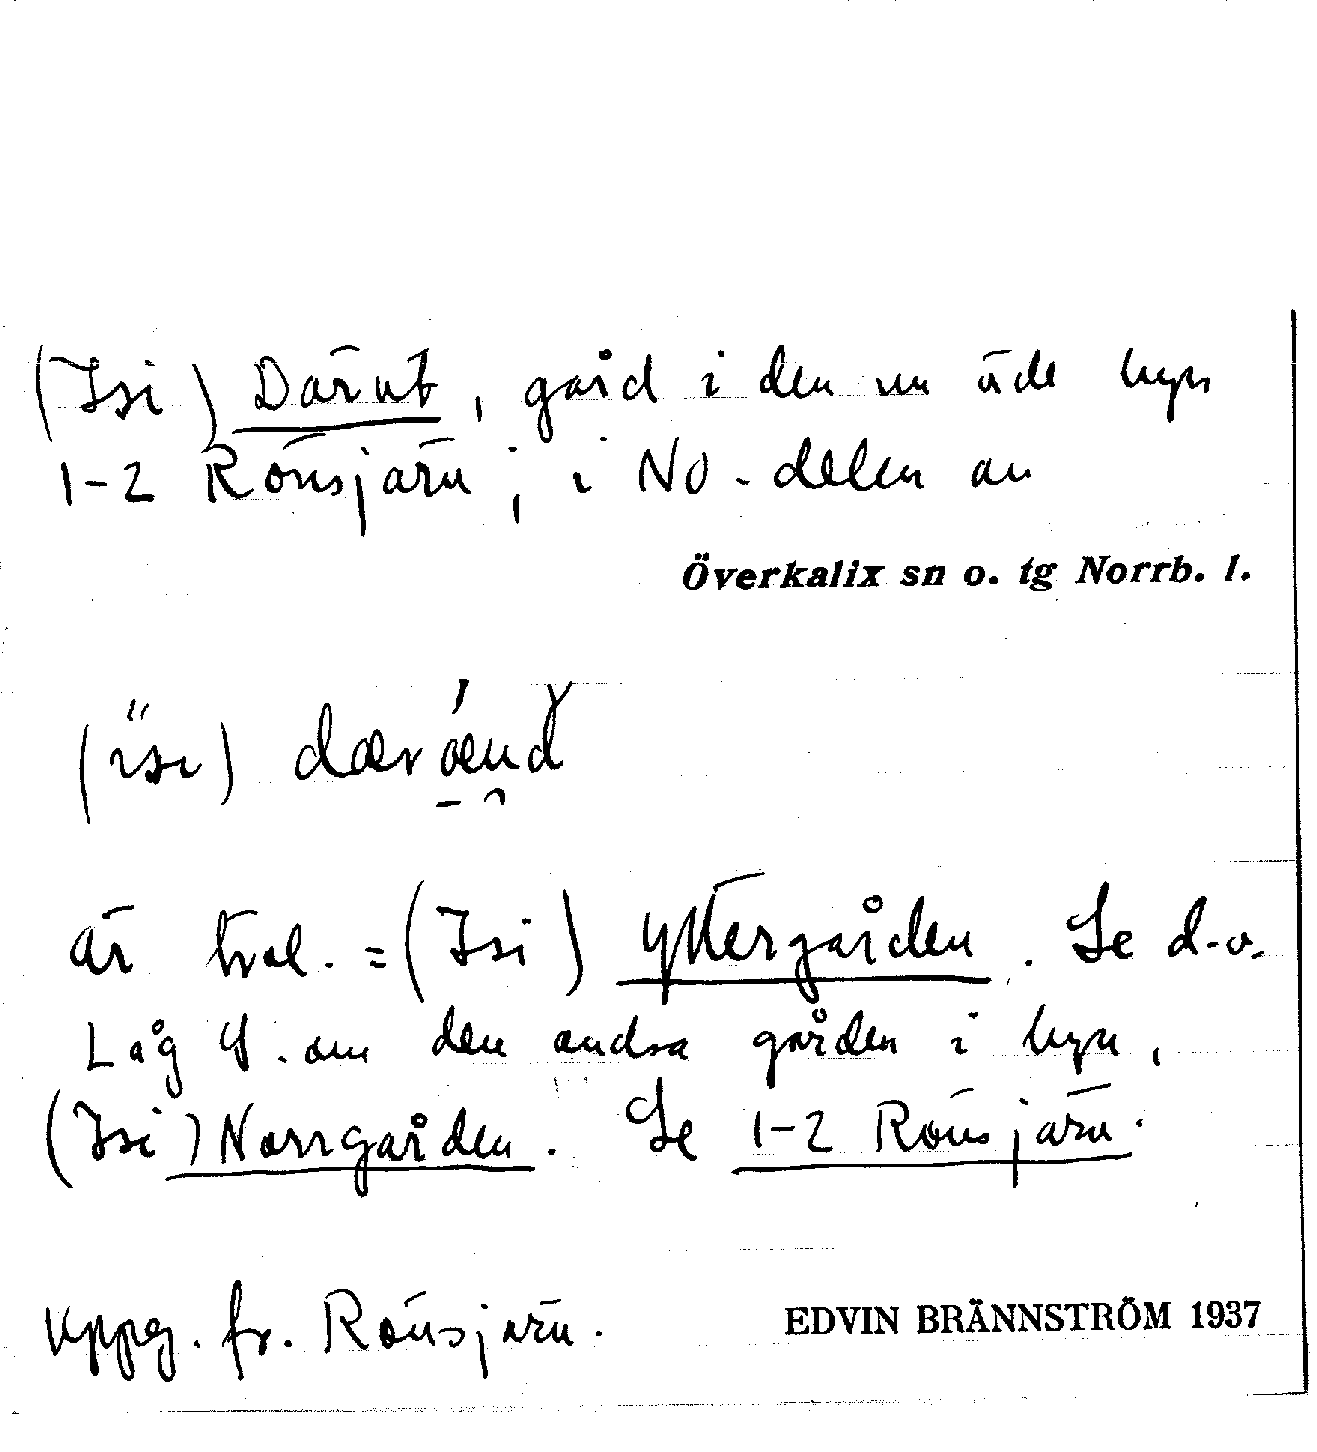 (Isi) Därut, gård i den nu öde byn
1-2 Rönsjärn; i NO-delen av
Överkalix sn o. tg Norrb. l.
(isi)
är tvol. = (Isi) Yttergården. Se d.o.
Låg S. om den andra gården i byn,
(Isi) Norrgården. Se 1-2 Rönsjärn.
Uppg. fr. Rönsjärn.
EDVIN BRÄNNSTRÖM 1937